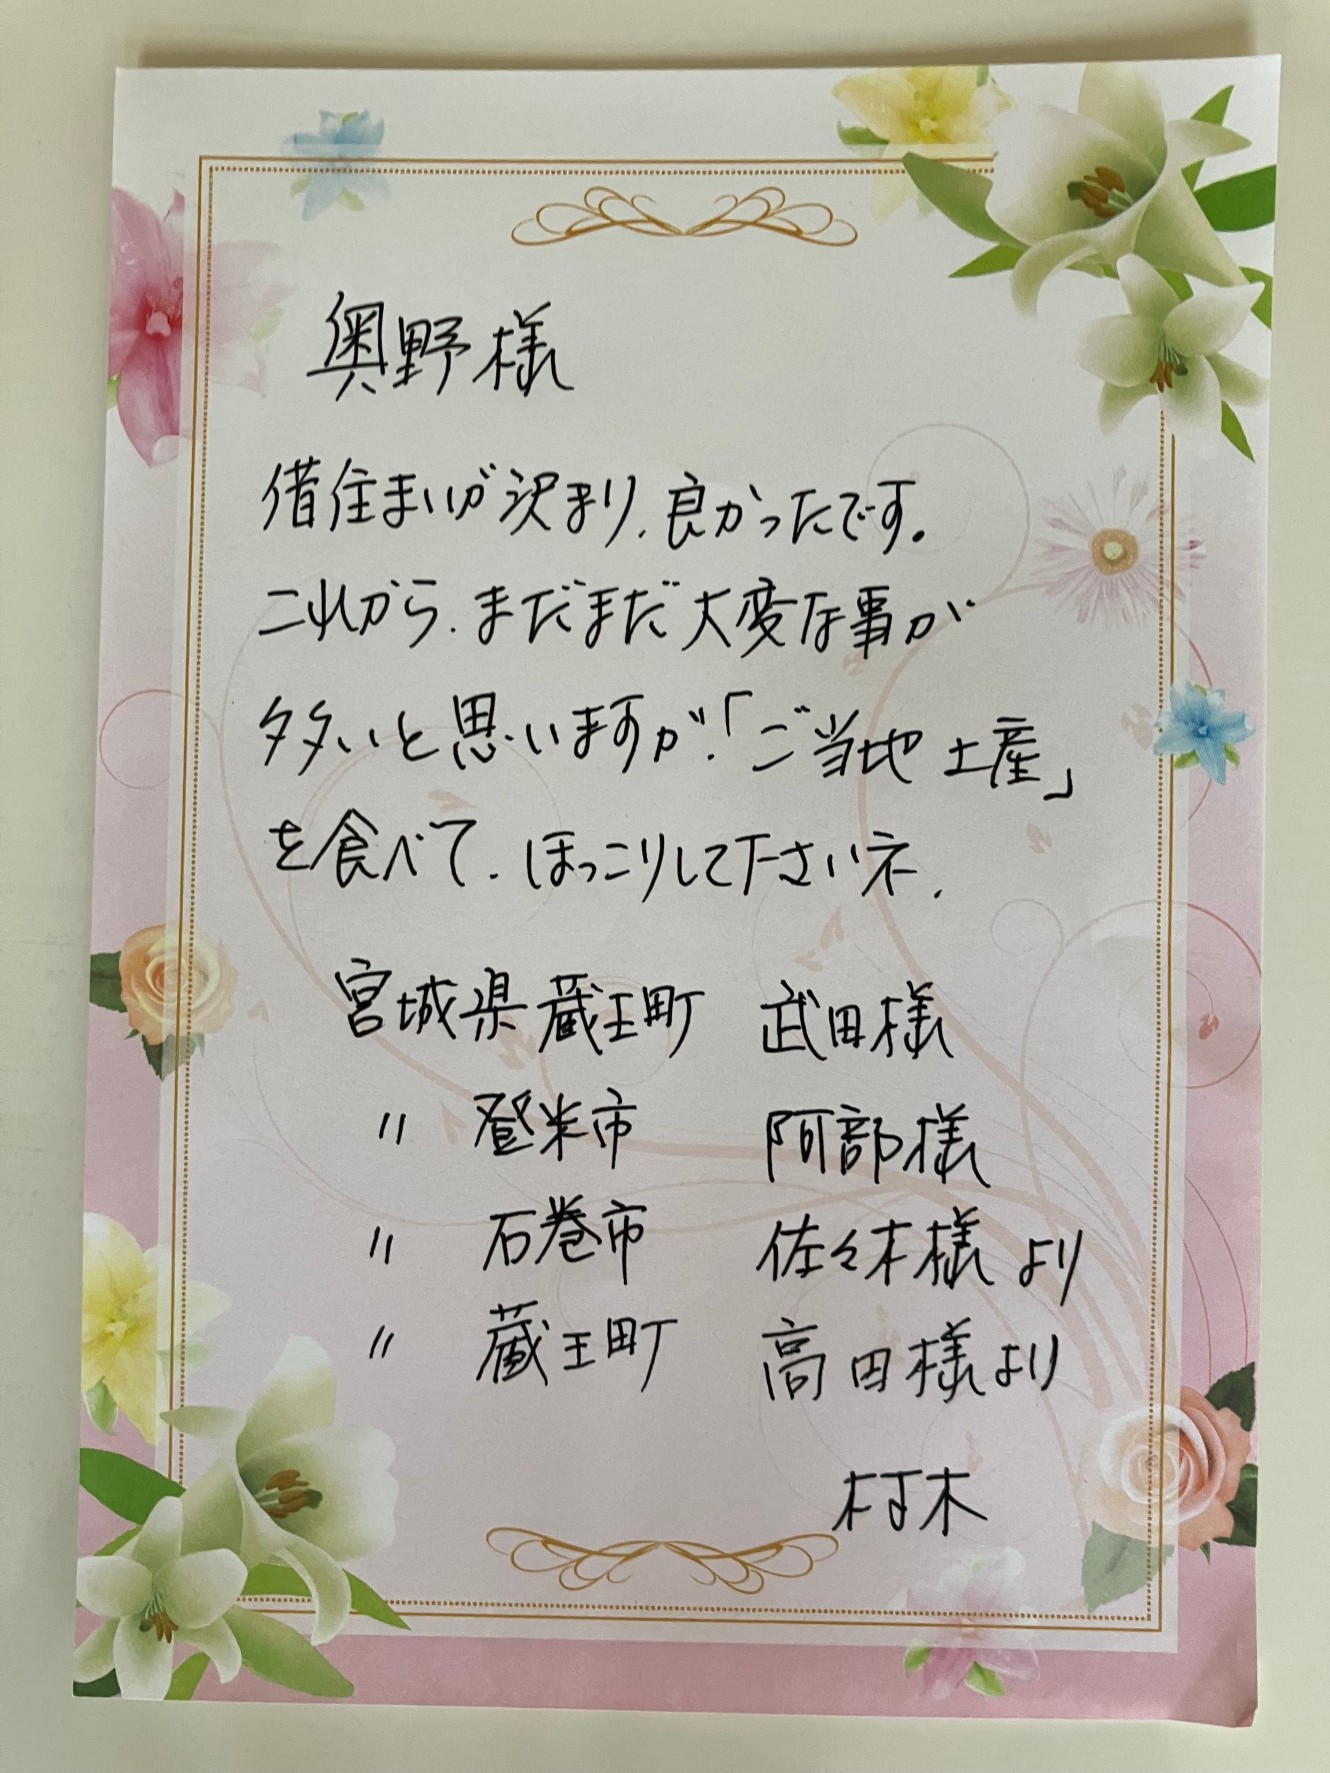 奥野様
借住まいが決まり、良かったです。
これから、まだまだ大変な事が
多いと思いますが、「ご当地土産」
を食べて、ほっこりして下さいネ、
宮城県蔵王町 武田様
〃 登米市 阿部様
〃 石巻市 佐々木様より
〃 蔵王町 高田様より
村木